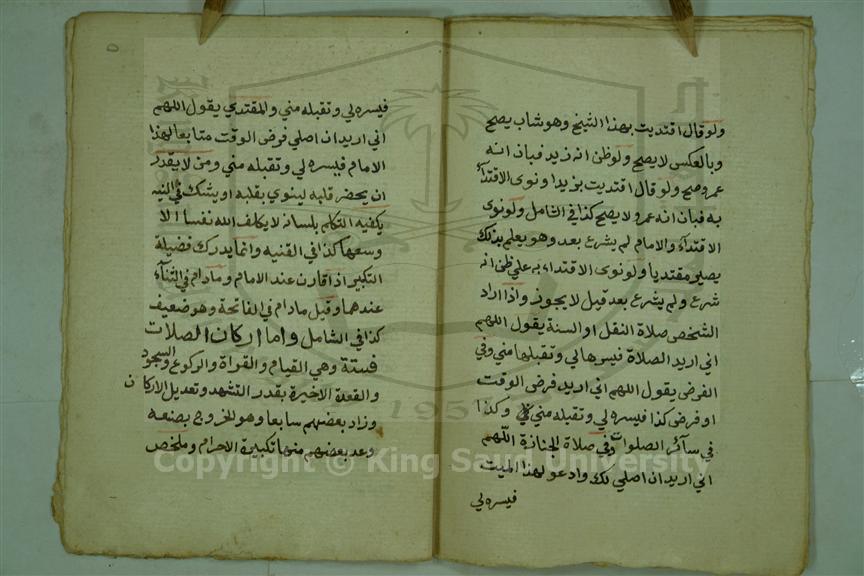 ولو قال اقتديت بهذا الشيخ وهو شاب يصح
وبالعكس لا يصح ولو ظن انه زيد فبان انه
عمرو صح ولو قال اقتديت بزيد او نوى الاقتدآء
به فبان انه عمرو لا يصح كذا في الشامل ولو نوى
الاقتدآء والامام لم يشرع بعد وهو يعلم بذلك
يصير مقتديا ولو نوى الاقتداء به على ظن انه
شرع ولم يشرع بعد قيل لا يجوز واذا اراد
الشخص صلاة النفل او السنة يقول اللهم
اني اريد الصلاة فيسرها لي وتقبلها مني وفي
الفرض يقول اللهم اني اريد فرض الوقت
او فرض كذا فيسره لي وتقبله مني وكذا
في سآئر الصلوات وفي صلاة الجنازة اللهم
اني اريد ان اصلي لك وادعو لهذا الميت
فيسره لي
٥
فيسره لي وتقبله مني والمقتدي يقول اللهم
اني اريد ان اصلي فرض الوقت متابعا لهذا
الامام فيسره لي وتقبله مني ومن لا يقدر
ان يحضر قلبه لينوي بقلبه او يشك في النيه
يكفيه التكلم بلسانه لا يكلف الله نفسا الا
وسعها كذا في القنيه وانما يدرك فضيلة
التكبير اذا قارن عند الامام وما دام في الثنآء
عندهما وقيل ما دام في الفاتحة وهو ضعيف
كذا في الشامل واما اركان الصلات
فستة وهي القيام والقراة والركوع والسجود
والقعدة الاخيرة بقدر التشهد وتعديل الاركان
وزاد بعضهم سابعا وهو الخروج بصنعه
وعد بعضهم منها تكبيرة الاحرام وملخص
1957
Copyright © King Saud University